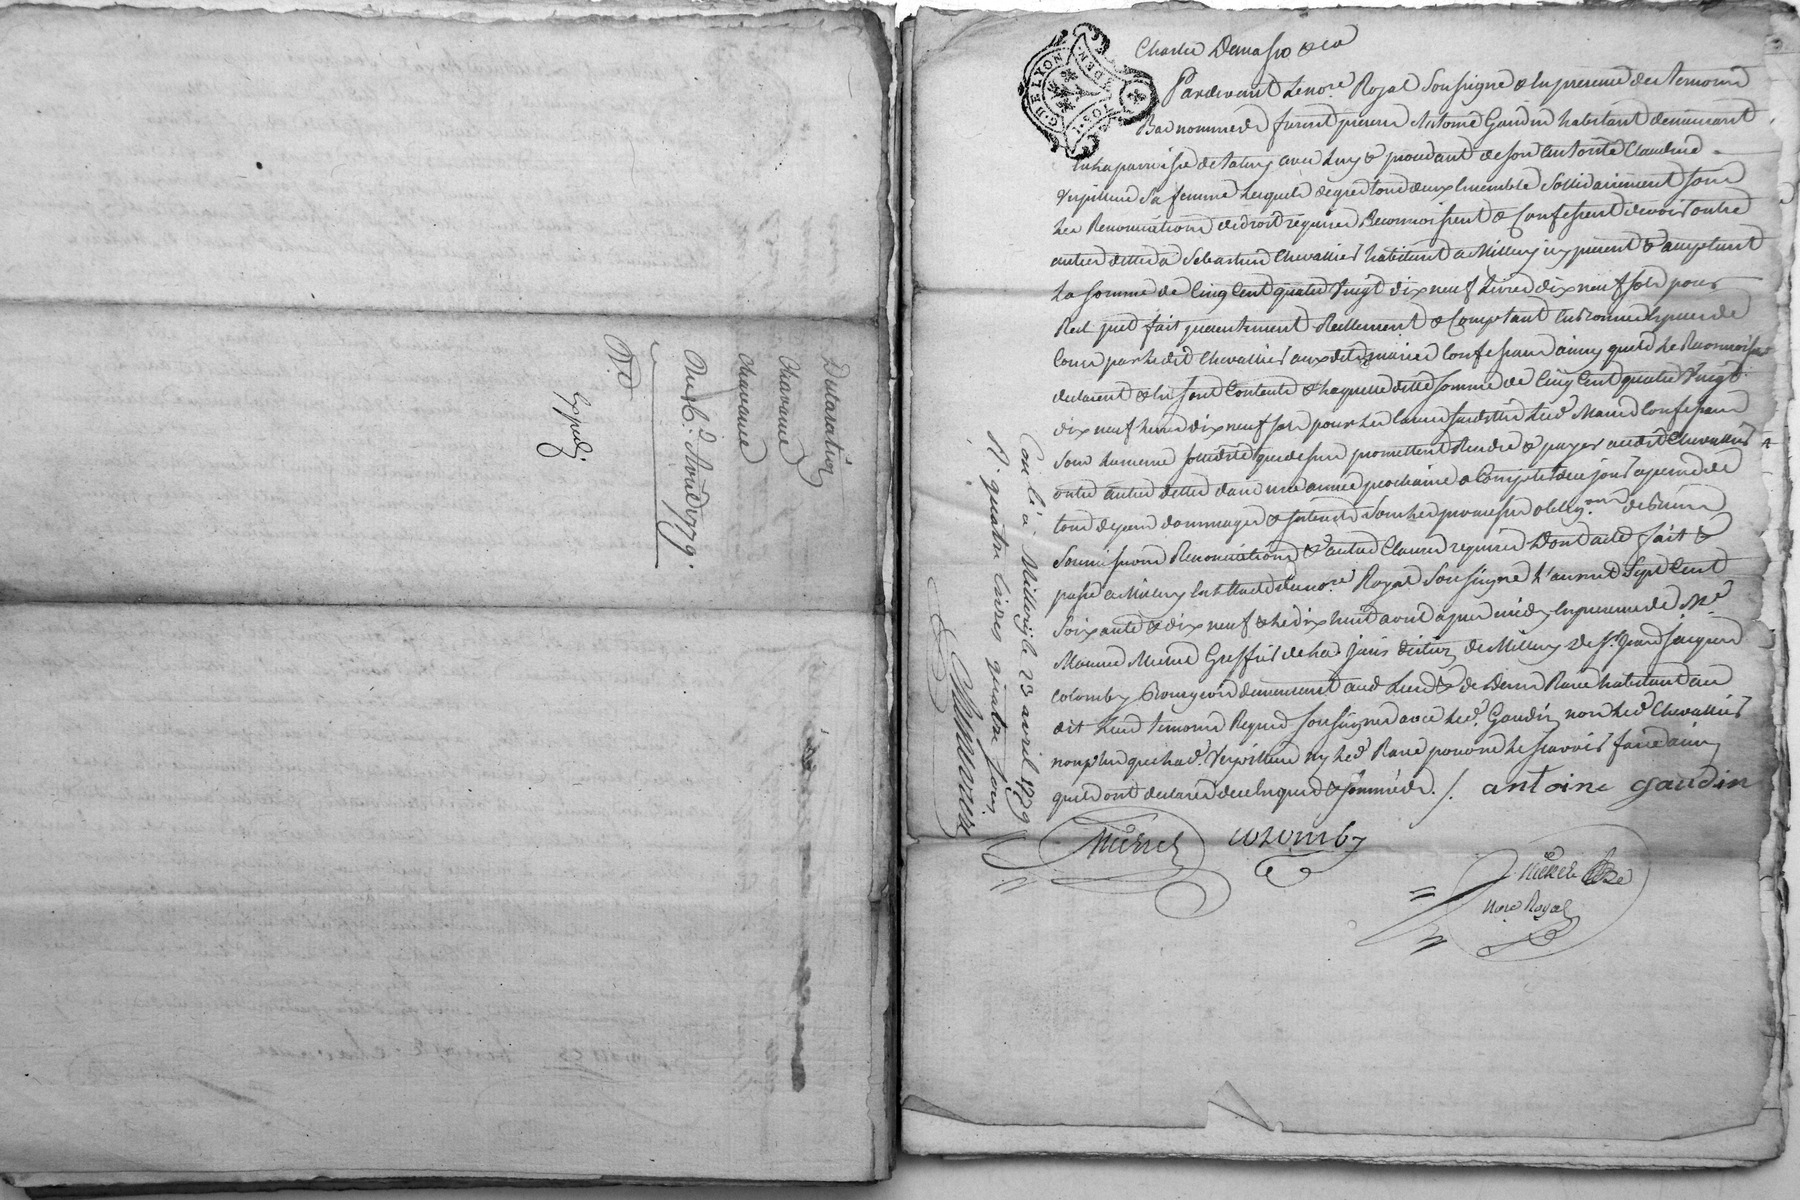 Declaration
Chavanne
Chavanne
Du 16.e Aoust 1779.
Expedié
G. DE LYON
1. SOL
DEN.
Pardevant Le nore. Royal Soussigné & En presence des temoins
Bas nommés furent presens Antoine Gaudin habitant demeurant
En La parroisse de Taluy avec Luy & procedant de son autorité Claudine
Verpilleux Sa femme Lesquels de gré tous deux Ensemble Sollidairement sous
Les Renonciations de droit requises Reconnoissent & Confessent devoir outre
autres dettes a Sebastien Chevallier habitant a Millery icy present & acceptant
La somme de Cinq Cent quatre Vingt dix neuf Livres dix neuf sols pour
Réel pret fait presentement Reellement & Comptant En bonnes Especes de
Cours par Ledit Chevallier auxdits mariés Confessans ainsy qu'ils Le Reconnoissent
declarent & En sont Contents & Laquelle ditte somme de Cinq Cent quatre Vingt
dix neuf Livres dix neuf sols pour Les Causes susdittes Lesd. Mariés Confessans
sous La meme sollidité que dessus promettent Rendre & payer audit Chevallier
outre autres dettes dans une année prochaine a Compter de ce jour a peine de
tous depens dommages & Interets sous Les promesses oblig.ons de biens
Soumissions Renonciations & autres Clauses requises Dont acte fait &
passé a Millery En Etude du nore. Royal Soussigné L'an mil Sept Cent
Soixante & dix neuf & Le dix huit avril apres midy En presence de Me.
Greffier de La Jurisdiction de Millery de Sr. Jean Jacques
Colomby Bourgeois demeurant aud. Lieu & de Denis Rave habitant au
dit Lieu temoins Requis soussignés avec Led. Gaudin non Led. Chevallier
non plus que Lad. Verpilleux ny Led. Rave pour ne Le sçavoir faire ainsy
qu'ils ont declarés de ce Enquis & sommés. /. antoine gaudin
colomby
nore Royal
Con.lé a Millery le 23 avril 1779
R. quatre livres quatre sous